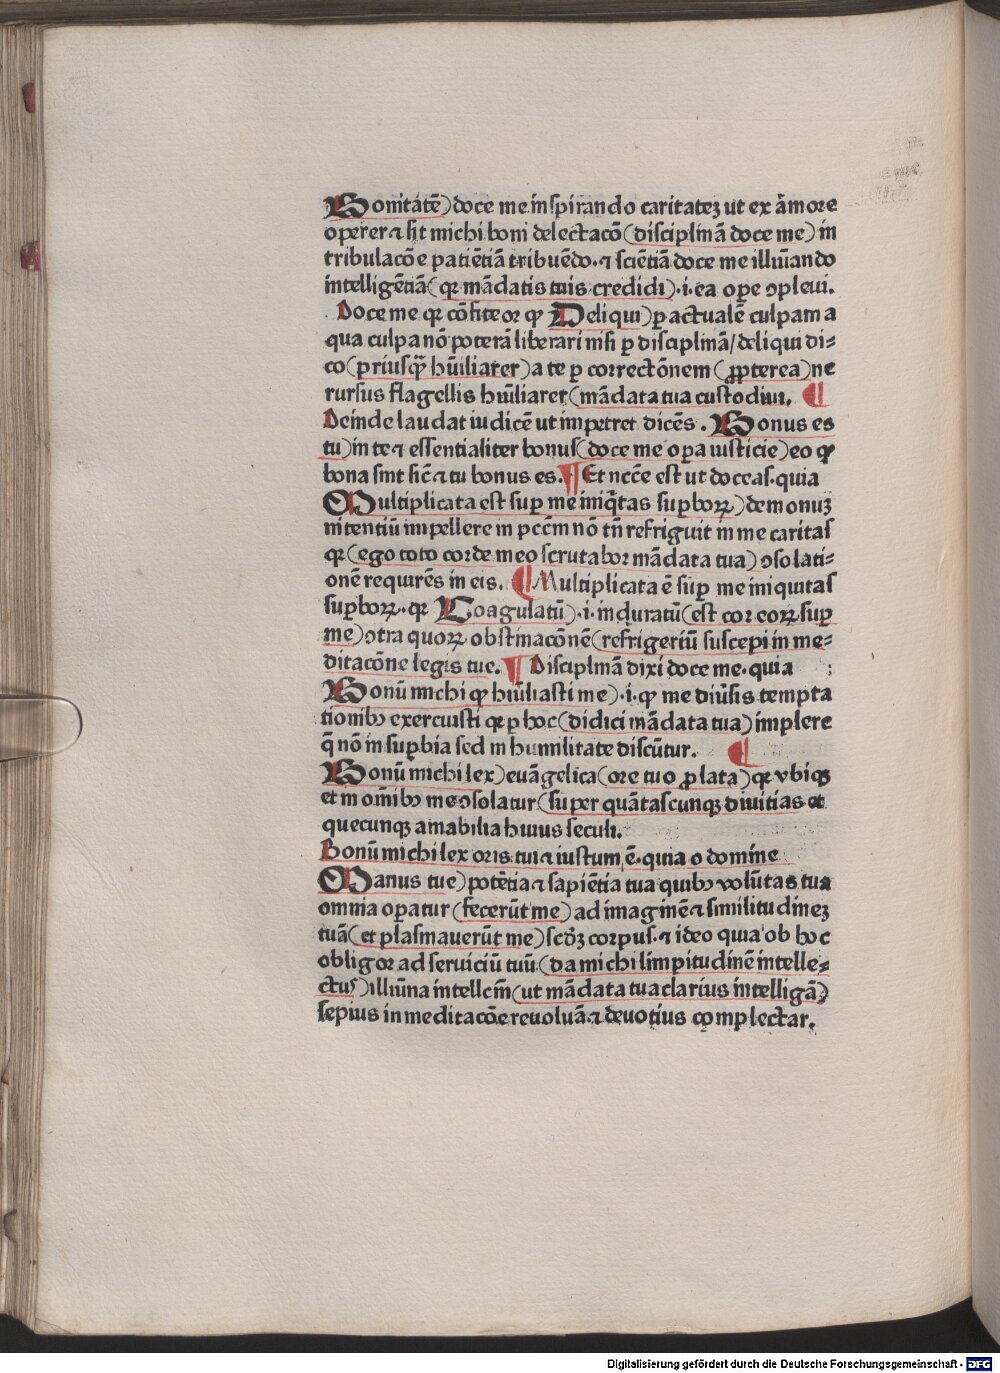 Bonitatē) doce me inspirando caritatez ut ex amore
operer ⁊ sit michi boni delectacō (disciplinā doce me) in
tribulacōe patiētiā tribuēdo. ⁊ sciētiā doce me illuīando
intelligētiā (qꝛ mādatis tuis credidi) .i. ea oꝑe ꝯpleui.
Doce me qꝛ cōfiteor qꝙ Deliqui) ꝑ actualē culpam a
qua culpa nō poterā liberari nisi ꝑ disciplinā / deliqui di⸗
co (priusq̄ hūiliarer) a te ꝑ correctōnem (ꝓpterea) ne
rursus flagellis hūiliarer (mādata tua custodiui. ¶
Deinde laudat iudicē ut impetret dicēs. Bonus es
tu) in te ⁊ essentialiter bonus (doce me oꝑa iusticie) eo qꝙ
bona sint sic̄ ⁊ tu bonus es. ¶ Et ncc̄e est ut doceas. quia
Multiplicata est suꝑ me iniq̄tas suꝑboꝝ) demonuꝫ
nitentiū impellere in pcc̄m nō tn̄ refriguit in me caritas
qꝛ (ego toto corde meo scrutabor mādata tua) ꝯsolati⸗
onē requirēs in eis. ¶ Multiplicata ē suꝑ me iniquitas
suꝑboꝝ. qꝛ Coagulatū) .i. induratū (est cor eoꝝ suꝑ
me) ꝯtra quoꝝ obstinacōnē (refrigeriū suscepi in me⸗
ditacōne legis tue. ¶ Disciplinā dixi doce me. quia
Bonū michi qꝙ hūiliasti me) .i. qꝙ me diūsis tempta
tionibꝰ exercuisti qꝛ ꝑ hoc (didici mādata tua) implere
q̄ nō in suꝑbia sed in humilitate discūtur. ¶
Bonū michi lex) euāgelica (ore tuo ꝓlata) qꝛ vbiqꝫ
et in om̄ibꝰ me ꝯsolatur (super quātascunqꝫ diuitias et
quecunqꝫ amabilia huius seculi.
Bonū michi lex oris tui ⁊ iustum ē. quia o domine
Manus tue) potētia ⁊ sapiētia tua quibꝰ volūtas tua
omnia oꝑatur (fecerūt me) ad imaginē ⁊ similitudineꝫ
tuā (et plasmauerūt me) scd̄ꝫ corpus. ⁊ ideo quia ob hoc
obligor ad seruiciū tuū (da michi limpitudinē intelle⸗
ctus) illūina intellcm̄ (ut mādata tua clarius intelligā)
sepius in meditacōe reuoluā ⁊ deuotius complectar.
Digitalisierung gefördert durch die Deutsche Forschungsgemeinschaft - DFG